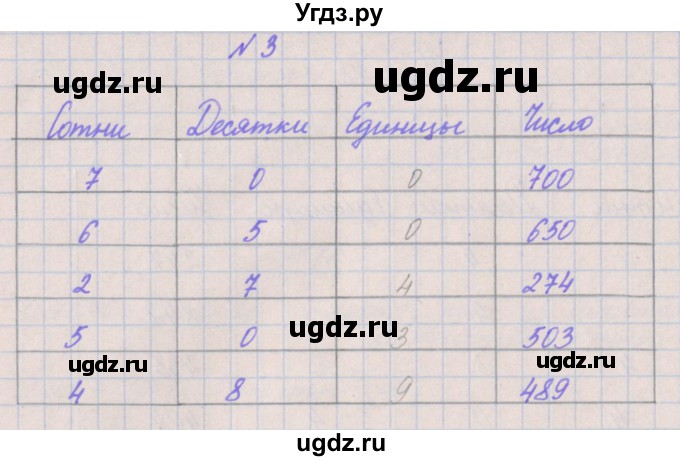 Угдз.ру
№ 3
ugdz.ru ugdz.ru
Сотни Десятки Единицы Число
7 0 0 700
6 5 0 650
2 7 4 274
ugdz.ru
5 0 3 503
ugdz.ru ugdz.ru
4 8 9 489
ugdz.ru